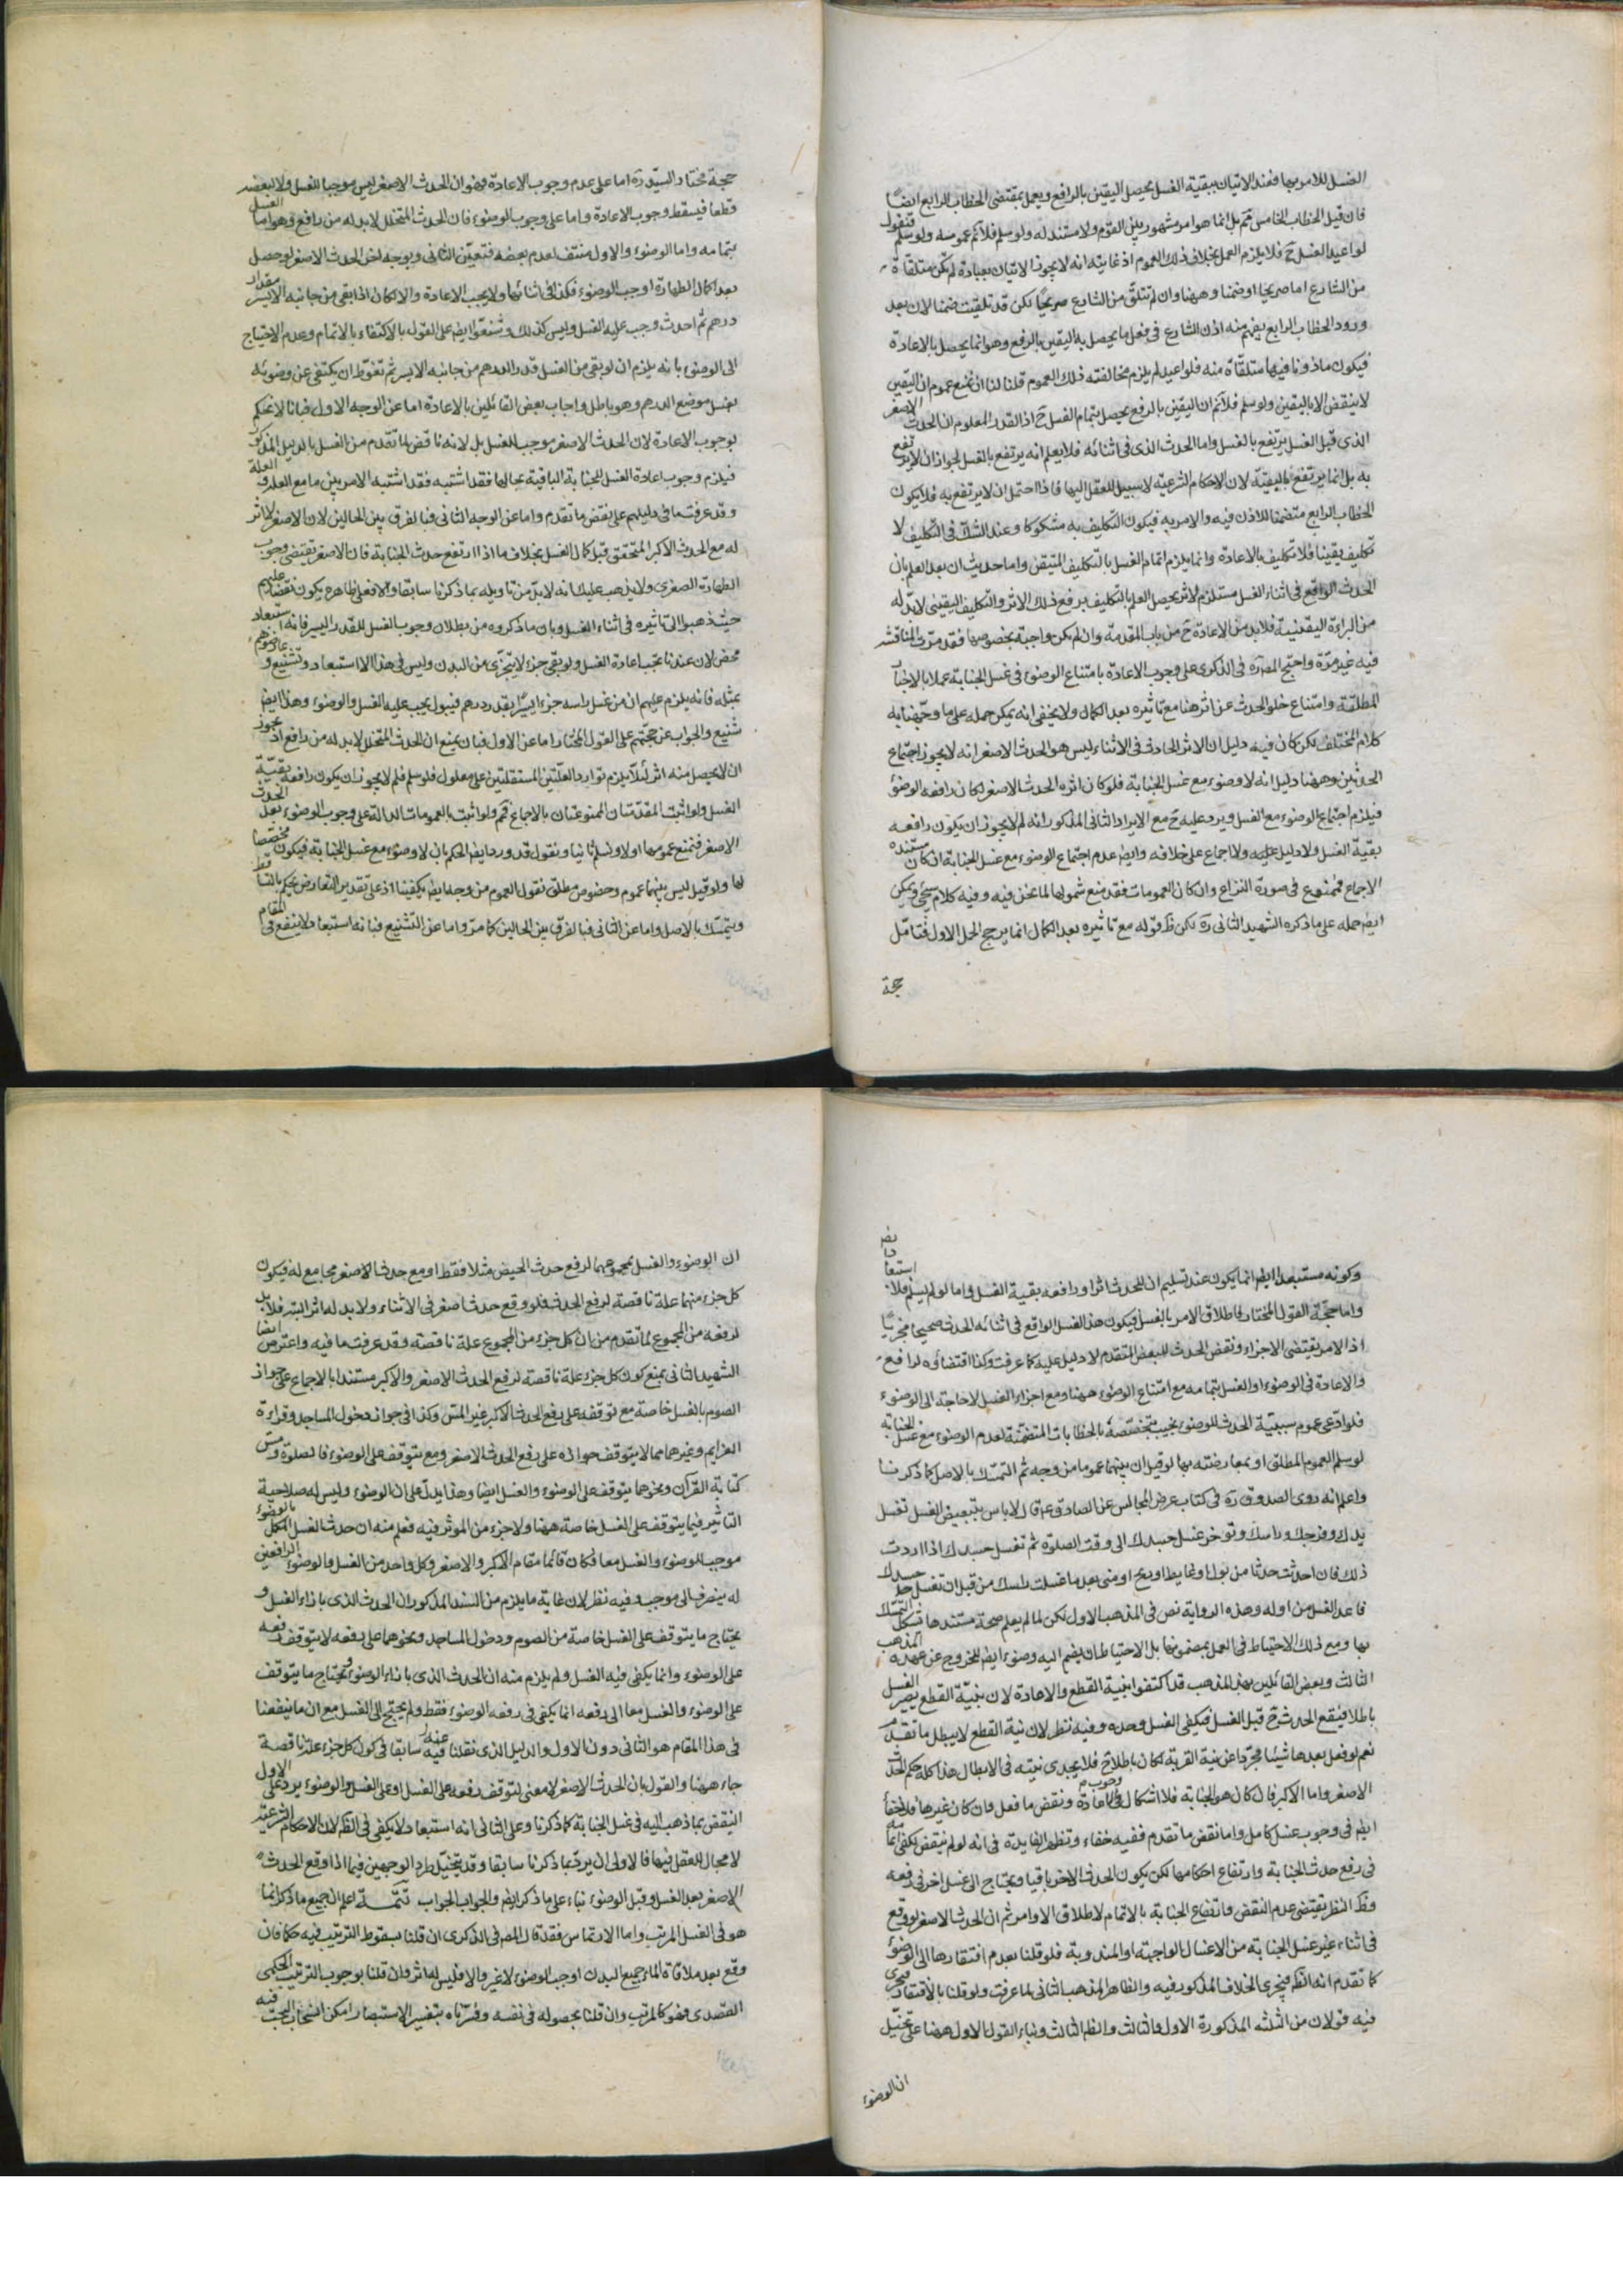 الغسل للامر بها فعند الاتيان ببقية الغسل يحصل اليقين بالرافع ويعمل بمقتضى الخطاب الرابع ايضا
فان قيل الخطاب الخامس بل انما هو امر مشهور بين القوم ولا مستند له ولو سلم فلا نم عمومه ولو سلم فنقول
لو اعيد الغسل ح فلا يلزم العمل بخلاف ذلك العموم اذ غايته انه لا يجوز الاتيان بعبادة لم تكن متلقاة
من الشارع اما صريحا او ضمنا وههنا وان لم تتلق من الشارع صريحا لكن قد تلقيت ضمنا لان بعد
ورود الخطاب الرابع يفهم منه اذن الشارع في فعل ما يحصل به اليقين بالرفع وهو انما يحصل بالاعادة
فيكون ماذونا فيها متلقاة منه فلو اعيد لم يلزم مخالفته ذلك العموم قلنا لنا ان نمنع عموم ان اليقين
لا ينقض الا باليقين ولو سلم فلا نم ان اليقين بالرفع يحصل بتمام الغسل ح اذ القدر المعلوم ان الحدث الاصغر
الذي قبل الغسل يرتفع بالغسل واما الحدث الذي في اثنائه فلا يعلم انه يرتفع بالغسل لجواز ان لا يرتفع
به بل انما يرتفع بالبقية لان الاحكام الشرعية لا سبيل للعقل اليها فاذا احتمل ان لا يرتفع به فلا يكون
الخطاب الرابع متضمنا للاذن فيه والامر به فيكون التكليف به مشكوكا وعند الشك في التكليف لا
تكليف يقينا فلا تكليف بالاعادة وانما يلزم اتمام الغسل بالتكليف المتيقن واما حديث ان بعد العلم بان
الحدث الواقع في اثناء الغسل مستلزم لاثر يحصل العلم بالتكليف برفع ذلك الاثر والتكليف اليقيني لا بد له
من البراءة اليقينية فلا بد من الاعادة ح من باب المقدمة وان لم يكن واجبة بخصوصها فقد مرت المناقشة
فيه غير مرة واحتج المصره في الذكرى على وجوب الاعادة بامتناع الوضوء في غسل الجنابة عملا بالاخبار
المطلقة وامتناع خلو الحدث عن اثر هنا مع تاثيره بعد الكمال ولا يخفى انه يمكن حمله على ما وجهنا به
كلام المختلف لكن كان فيه دليل ان الاثر الحادث في الاثناء ليس هو الحدث الاصغر انه لا يجوز اجتماع
الحدثين وههنا دليل انه لا وضوء مع غسل الجنابة فلو كان اثره الحدث الاصغر لكان رافعه الوضوء
فيلزم اجتماع الوضوء مع الغسل ويرد عليه ح مع الايراد الثاني المذكور انه لم لا يجوز ان يكون رافعه
بقية الغسل ولا دليل عليه ولا اجماع على خلافه وايض عدم اجتماع الوضوء مع غسل الجنابة ان كان مستنده
الاجماع فممنوع في صورة النزاع وان كان العمومات فقد منع شمولها لما نحن فيه وفيه كلام سيجئ ويمكن
ايض حمله على ما ذكره الشهيد الثاني ره لكن ظ قوله مع تاثيره بعد الكمال انما يرجح الحمل الاول فتامل
حجة
حجة مختار السيد ره اما على عدم وجوب الاعادة فهو ان الحدث الاصغر ليس موجبا للغسل ولا لبعضه
قطعا فيسقط وجوب الاعادة واما على وجوب الوضوء فان الحدث المتخلل لا بد له من رافع وهو اما الغسل
بتمامه واما الوضوء والاول منتف لعدم بعضه فتعين الثاني وبوجه اخر الحدث الاصغر لو حصل
بعد اكمال الطهارة اوجب الوضوء فكذا في اثنائها ولا يجب الاعادة والا لكان اذا بقي من جانبه الايسر مقدار
درهم ثم احدث وجب عليه الغسل وليس كذلك وشنعوا ايض على القول بالاكتفاء بالاتمام وعدم الاحتياج
الى الوضوء بانه يلزم ان لو بقي من الغسل قدر الدرهم من جانبه الايسر ثم تغوط ان يكتفى عن وضوئه
بغسل موضع الدرهم وهو باطل واجاب بعض القائلين بالاعادة اما عن الوجه الاول فبانا لا نحكم
بوجوب الاعادة لان الحدث الاصغر موجب للغسل بل لانه ناقض لما تقدم من الغسل بالدليل المذكور
فيلزم وجوب اعادة الغسل للجنابة الباقية بحالها فقد اشتبه الامر بين ما مع العلة
وقد عرفت ما في دليلهم على نقض ما تقدم واما عن الوجه الثاني فبالفرق بين الحالين لان الاصغر لا اثر
له مع الحدث الاكبر المتحقق قبل كمال الغسل بخلاف ما اذا ارتفع حدث الجنابة فان الاصغر يقتضي وجوب
الطهارة الصغرى ولا يذهب عليك انه لا بد من تاويله بما ذكرنا سابقا والا فعلى ظاهره يكون نقضا عليهم
حيث ذهبوا الى تاثيره في اثناء الغسل وبان ما ذكروه من بطلان وجوب الغسل للقدر اليسير فانه استبعاد
محض لان عندنا تجب اعادة الغسل ولو بقي جزء لا يتجزى من البدن وليس في هذا الا استبعاد وتشنيع
بمثله فانه يلزم عليهم ان من غسل راسه جزءا يسيرا بقدر درهم فيبول يجب عليه الغسل والوضوء وهذا ايض
شنيع والجواب عن حجتهم على القول المختار اما عن الاول فبان يمنع ان الحدث المتخلل لا بد له من رافع اذ يجوز
ان لا يحصل منه اثر لئلا يلزم توارد العلتين المستقلتين على معلول فلو سلم فلم لا يجوز ان يكون رافعه بقية
الغسل ولو اثبت المقدمتان الممنوعتان بالاجماع ولو اثبت بالعمومات الدالة على وجوب الوضوء بعد الحدث
الاصغر فنمنع عمومها اولا ونسلم ثانيا ونقول قد ورد ايض الحكم بان لا وضوء مع غسل الجنابة فيكون مخصصا
لها ولو قيل ليس بينهما عموم وخصوص مطلق نقول العموم من وجه ايض يكفينا اذ على تقدير التعارض نحكم بالتساقط
ويتمسك بالاصل واما عن الثاني فبالفرق بين الحالين كما مر واما عن التشنيع فبانه استبعاد لا ينفع في المقام
وكونه مستبعدا ايض انما يكون عند تسليم ان للحدث اثرا ورافعه بقية الغسل واما لو لم يسلم فلا استبعاد ايض
واما حجة القول المختار فاطلاق الامر بالغسل فيكون هذا الغسل الواقع في اثنائه الحدث صحيحا مجزيا
اذ الامر يقتضي الاجزاء ونقض الحدث للبعض المتقدم لا دليل عليه كما عرفت وكذا اقتضاؤه لرافع
والاعادة في الوضوء او الغسل بتمامه مع امتناع الوضوء ههنا ومع اجزاء الغسل لا حاجة الى الوضوء
فلو ادعى عموم سببية الحدث للوضوء نجيب بتخصصه بالخطابات المتضمنة لعدم الوضوء مع غسل الجنابة
لو سلم العموم المطلق او بمعارضته بها لو قيل ان بينهما عموما من وجه ثم التمسك بالاصل كما ذكرنا
واعلم انه روى الصدوق ره في كتاب عرض المجالس عن الصادق ع قال لا باس بتبعيض الغسل تغسل
يدك وفرجك وراسك وتؤخر غسل جسدك الى وقت الصلوة ثم تغسل جسدك اذا اردت
ذلك فان احدثت حدثا من بول او غايط او ريح او منى بعد ما غسلت راسك من قبل ان تغسل جسدك
فاعد الغسل من اوله وهذه الرواية نص في المذهب الاول لكن لما لم يعلم صحة مستندها تشكل التمسك
بها ومع ذلك الاحتياط في العمل بمضمونها بل الاحتياط ان يضم اليه وضوء ايض للخروج عن عهدة المذهب
الثالث وبعض القائلين بهذا المذهب قد اكتفوا بنية القطع والاعادة لان بنية القطع يصير الغسل
باطلا فيقع الحدث ح قبل الغسل فيكفي الغسل وحده وفيه نظر لان نية القطع لا يبطل ما تقدم
نعم لو فعل بعدها شيئا مجردا عن نية القربة لكان باطلا ح فلا يجدى نيته في الابطال هذا كله حكم الحدث
الاصغر واما الاكبر فان كان هو الجنابة فلا اشكال في وجوب الاعادة ونقض ما فعل فان كان غيرها فلا خفاء
ايض في وجوب غسل كامل واما نقض ما تقدم ففيه خفاء وتظهر الفايدة في انه لو لم ينقض يكفي اتمامه
في رفع حدث الجنابة وارتفاع احكامها لكن يكون الحدث الاخر باقيا ويحتاج الى غسل اخر في رفعه
وظ النظر يقتضي عدم النقض وارتفاع الجنابة بالاتمام لاطلاق الاوامر ثم ان الحدث الاصغر لو وقع
في اثناء غير غسل الجنابة من الاغسال الواجبة او المندوبة فلو قلنا بعدم افتقارها الى الوضوء
كما تقدم انه الظ فيجرى الخلاف المذكور فيه والظاهر المذهب الثاني لما عرفت ولو قلنا بالافتقار فيجرى
فيه قولان من الثلثة المذكورة الاول والثالث والظ الثالث وبناء القول الاول ههنا على تخيل
ان الوضوء
ان الوضوء والغسل بمجموعهما لرفع حدث الحيض مثلا فقط او مع حدث الاصغر مجامع له فيكون
كل جزء منهما علة ناقصة لرفع الحدث فلو وقع حدث اصغر في الاثناء ولا بد له اثر البتة فلا بد
لرفعه من المجموع لما تقدم من ان كل جزء من المجموع علة ناقصة وقد عرفت ما فيه واعترض ايضا
الشهيد الثاني بمنع كون كل جزء علة ناقصة لرفع الحدث الاصغر والاكبر مستندا بالاجماع على جواز
الصوم بالغسل خاصة مع توقفه على رفع الحدث الاكبر غير المس وكذا في جواز دخول المساجد وقراءة
العزايم وغيرهما مما لا يتوقف جوازه على رفع الحدث الاصغر ومع يتوقف على الوضوء فالصلوة ومس
كتابة القرآن ونحوها يتوقف على الوضوء والغسل ايضا وهذا يدل على ان الوضوء وليس له صلاحية
التاثير فيما يتوقف على الغسل خاصة ههنا ولا جزء من الموثر فيه فعلم منه ان حدث الغسل المكمل بالوضوء
موجب للوضوء والغسل معا فكان قائما مقام الاكبر والاصغر وكل واحد من الغسل والوضوء الرافعين
له ينصرف الى موجبه وفيه نظر لان غاية ما يلزم من السند المذكور ان الحدث الذي بازاء الغسل و
يحتاج ما يتوقف على الغسل خاصة من الصوم ودخول المساجد ونحوهما على رفعه لا يتوقف رفعه
على الوضوء وانما يكفي فيه الغسل ولم يلزم منه ان الحدث الذي بازاء الوضوء ويحتاج ما يتوقف
على الوضوء والغسل معا الى رفعه انما يكفي في رفعه الوضوء فقط ولم يحتج الى الغسل مع ان ما ينفعنا
في هذا المقام هو الثاني دون الاول والدليل الذي نقلنا عنه سابقا في كون كل جزء علة ناقصة
جاء ههنا والقول بان الحدث الاصغر لا معنى لتوقف رفعه على الغسل او على الغسل والوضوء يرد على الاول
النقض بما ذهب اليه في غسل الجنابة كما ذكرنا وعلى الثاني انه استبعاد لا يكفي في الظ لان الاحكام الشرعية
لا مجال للعقل فيها فالاولى ان يرد بما ذكرنا سابقا وقد يتخيل طرد الوجهين فيما اذا وقع الحدث
الاصغر بعد الغسل وقبل الوضوء بناء على ما ذكر ايض والجواب الجواب تتمة اعلم ان جميع ما ذكر انما
هو في الغسل المرتب واما الارتماس فقد قال المص في الذكرى ان قلنا بسقوط الترتيب فيه حكما فان
وقع بعد ملاقاة الماء جميع البدن اوجب الوضوء لا غير والا فليس له اثر وان قلنا بوجوب الترتيب الحكمى
القصدي فهو كالمرتب وان قلنا بحصوله في نفسه وفسرناه بتفسير الاستبصار امكن انسحاب البحث فيه